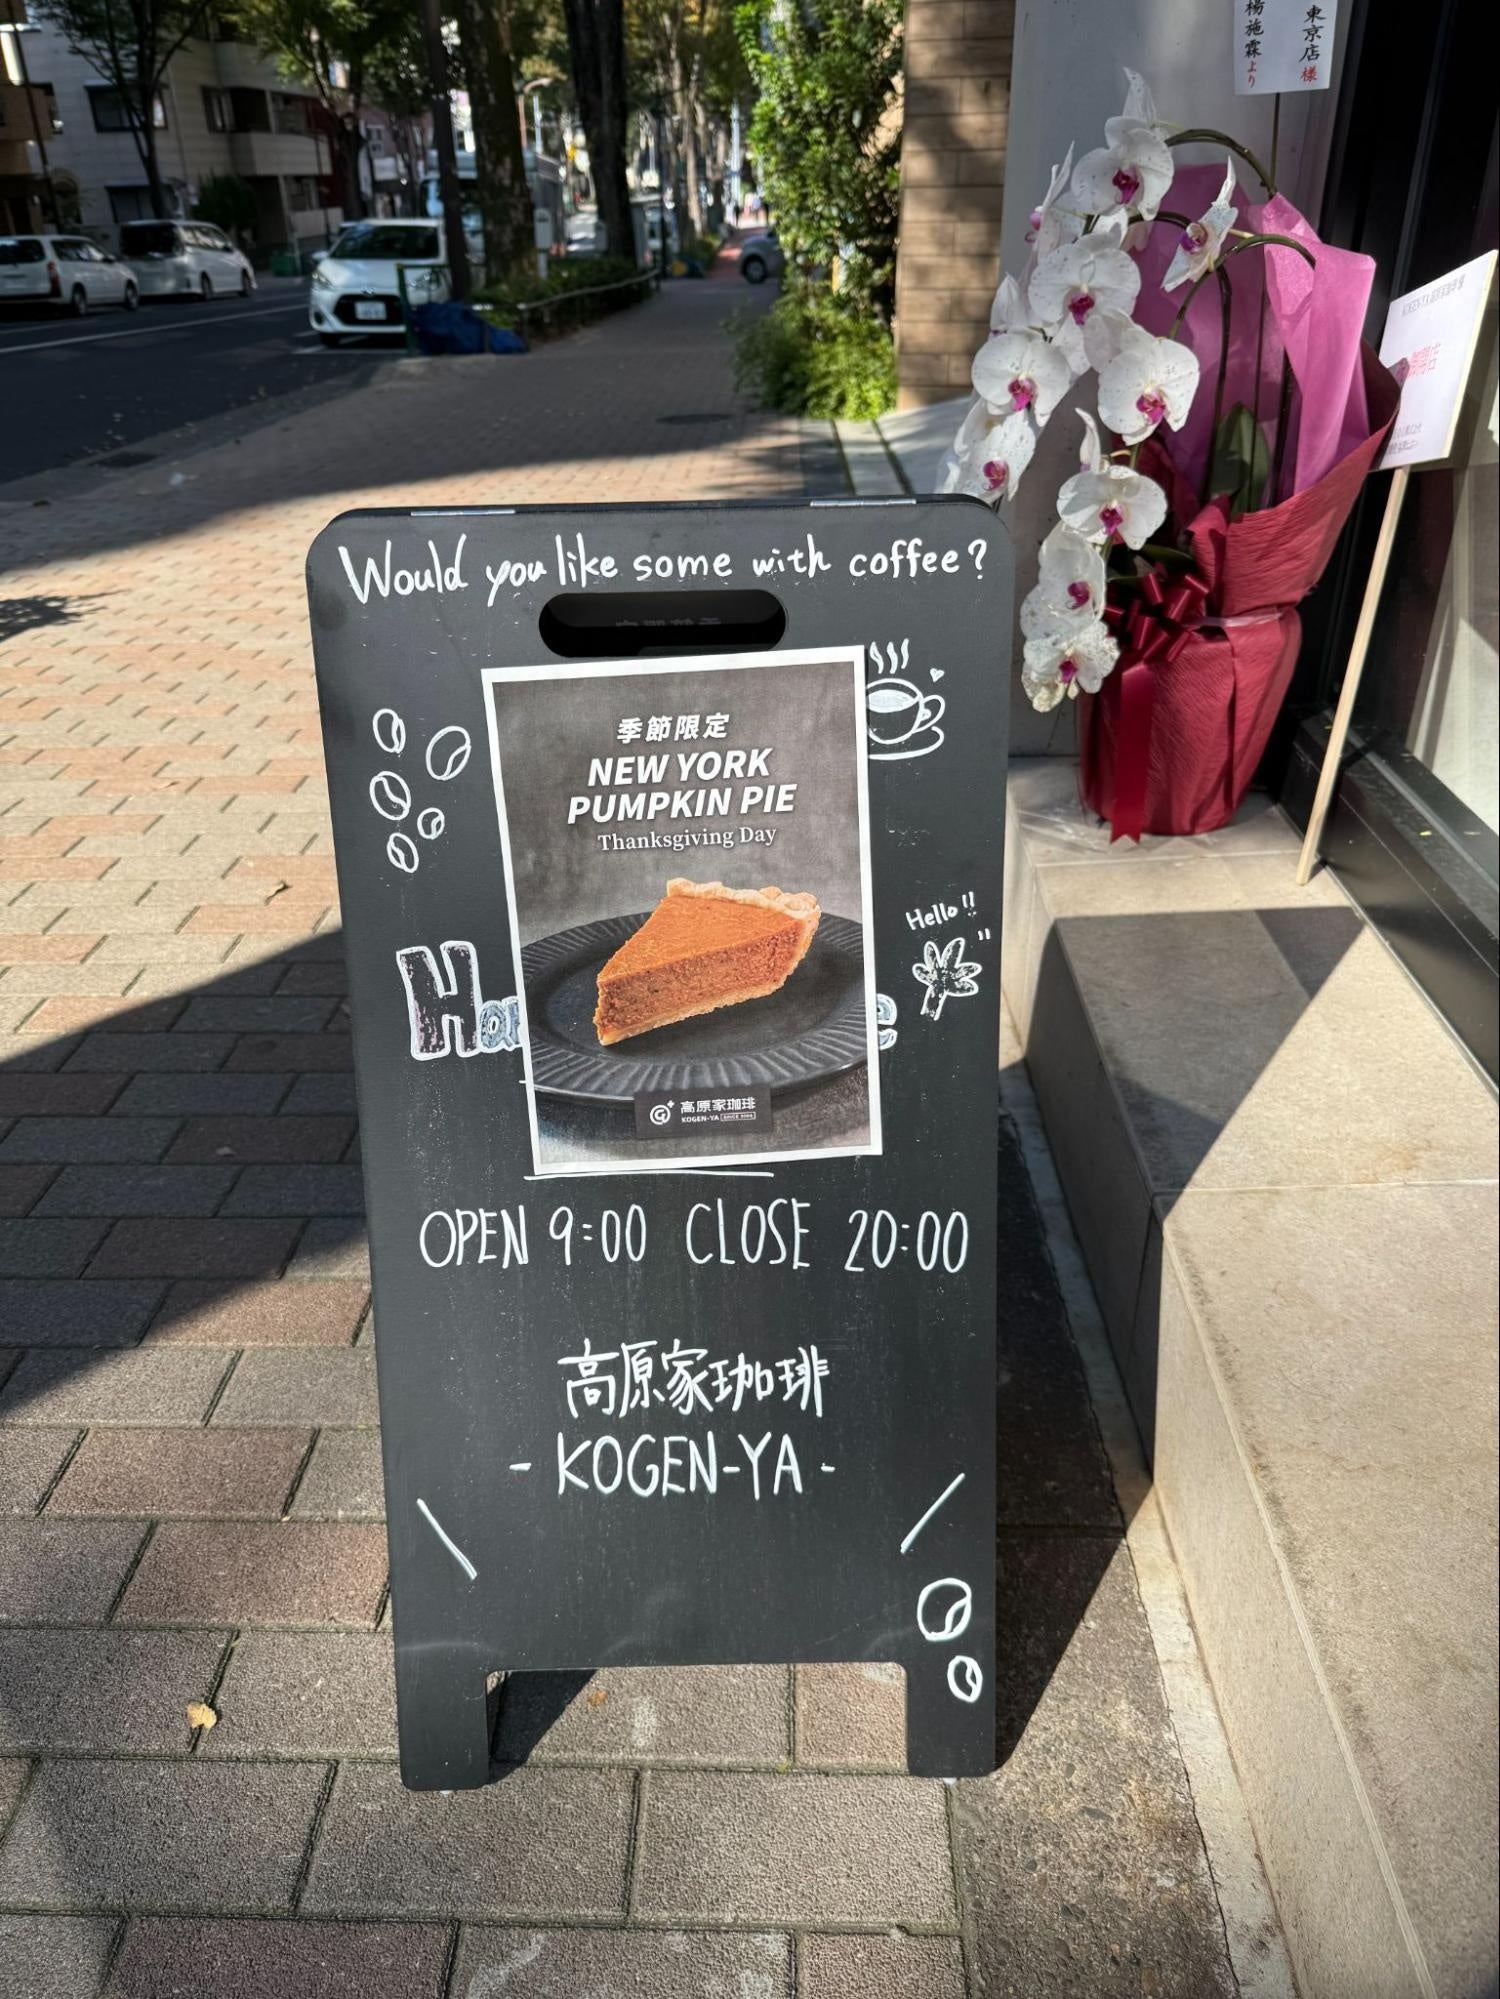 東京店様
楊施霖より
Would you like some with coffee?
季節限定
NEW YORK
PUMPKIN PIE
Thanksgiving Day
Hello!!
高原家珈琲
KOGEN-YA
OPEN 9:00 CLOSE 20:00
高原家珈琲
- KOGEN-YA -